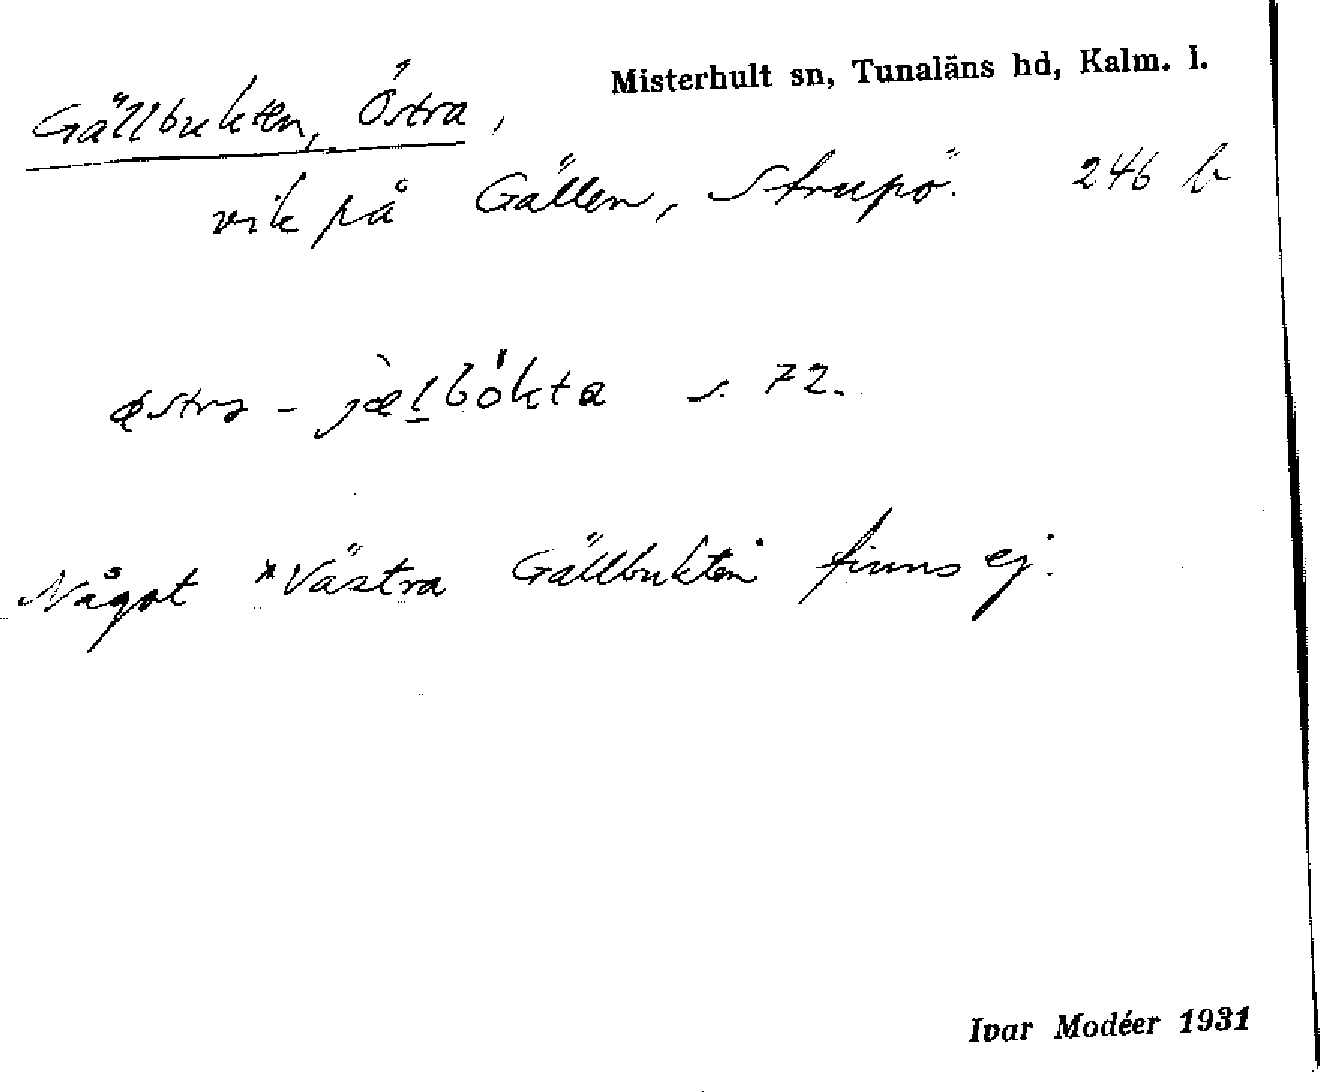 Misterhult sn, Tunaläns hd, Kalm. l.
Gällbukten, Östra,
vik på Gällen, Strupö. 246 b
s. 72.
Något *Västra Gällbukten finns ej.
Ivar Modéer 1931